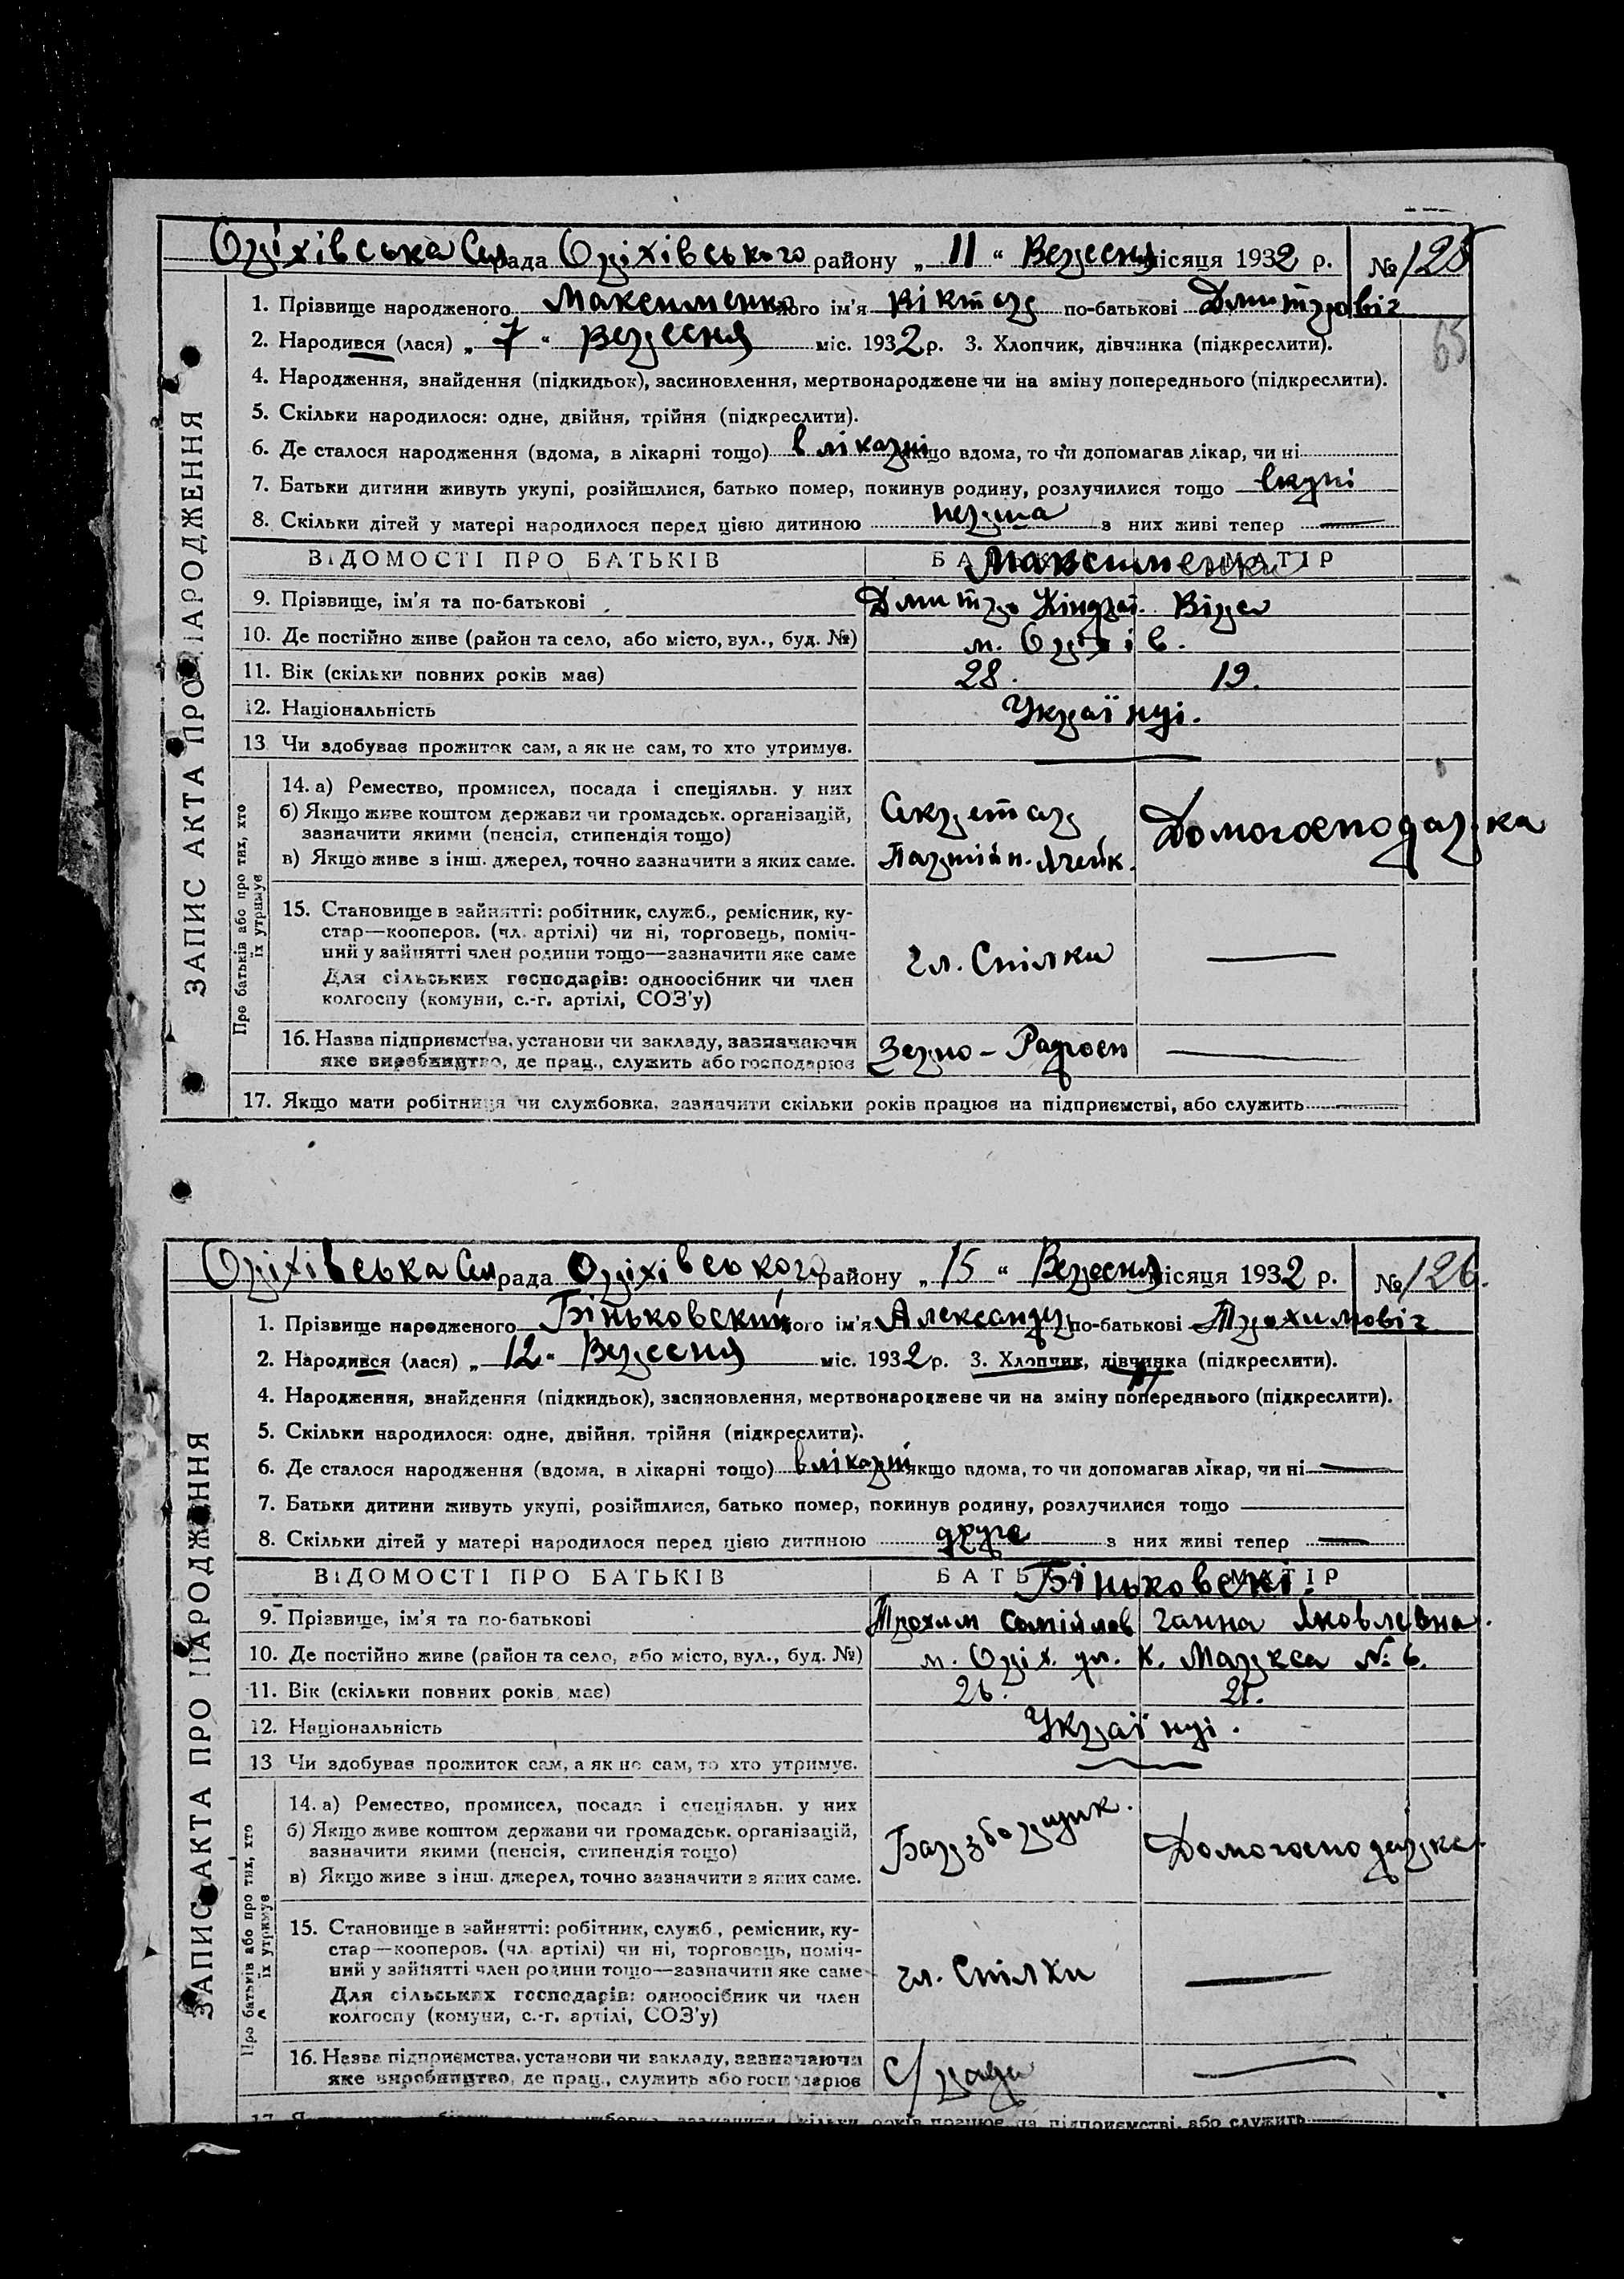 Оріхівська Сел рада Оріхівського району „ 11 “ Вересня місяця 1932 р. № 125
65
1. Прізвище народженого Максименко його ім'я Віктор по-батькові Дмитровіч
2. Народився (лася) „ 7 “ Вересня міс. 1932 р. 3. Хлопчик, дівчинка (підкреслити).
4. Народження, знайдення (підкидьок), засиновлення, мертвонароджене чи на зміну попереднього (підкреслити).
5. Скільки народилося: одне, двійня, трійня (підкреслити).
6. Де сталося народження (вдома, в лікарні тощо) в лікарні якщо вдома, то чи допомагав лікар, чи ні
7. Батьки дитини живуть укупі, розійшлися, батько помер, покинув родину, розлучилися тощо вкупі
8. Скільки дітей у матері народилося перед цією дитиною перша з них живі тепер —
ВІДОМОСТІ ПРО БАТЬКІВ БАТЬКО МАТІР
Максименки
9. Прізвище, ім'я та по-батькові Дмитро Кіндрат. Віра
10. Де постійно живе (район та село, або місто, вул., буд. №) м. Оріхів.
11. Вік (скільки повних років має) 28. 19.
12. Національність Українці.
13 Чи здобуває прожиток сам, а як не сам, то хто утримує. —
ЗАПИС АКТА ПРО НАРОДЖЕННЯ
Про батьків або про тих, хто їх утримує
14. а) Ремество, промисел, посада і спеціяльн. у них
б) Якщо живе коштом держави чи громадськ. організацій, зазначити якими (пенсія, стипендія тощо)
в) Якщо живе з інш. джерел, точно зазначити з яких саме.
Секретар Партійн. Ячейк. Домогосподарка
15. Становище в зайнятті: робітник, служб., ремісник, ку-
стар—кооперов. (чл. артілі) чи ні, торговець, поміч-
ний у зайнятті член родини тощо—зазначити яке саме
Для сільських господарів: одноосібник чи член
колгоспу (комуни, с.-г. артілі, СОЗ'у)
чл. Спілки —
16. Назва підприємства, установи чи закладу, зазначаючи
яке виробництво, де прац., служить або господарює
Зерно - Радгосп —
17. Якщо мати робітниця чи службовка, зазначити скільки років працює на підприємстві, або служить —
Оріхівська Сел рада Оріхівського району „ 15 “ Вересня місяця 1932 р. № 126.
1. Прізвище народженого Біньковский його ім'я Александр по-батькові Трохимовіч
2. Народився (лася) „ 12 “ Вересня міс. 1932 р. 3. Хлопчик, дівчинка (підкреслити).
4. Народження, знайдення (підкидьок), засиновлення, мертвонароджене чи на зміну попереднього (підкреслити).
5. Скільки народилося: одне, двійня, трійня (підкреслити).
6. Де сталося народження (вдома, в лікарні тощо) в лікарні якщо вдома, то чи допомагав лікар, чи ні —
7. Батьки дитини живуть укупі, розійшлися, батько помер, покинув родину, розлучилися тощо
8. Скільки дітей у матері народилося перед цією дитиною друге з них живі тепер —
ВІДОМОСТІ ПРО БАТЬКІВ БАТЬКО МАТІР
Біньковскі.
9. Прізвище, ім'я та по-батькові Трохим Самійлов Ганна Яковлевна.
10. Де постійно живе (район та село, або місто, вул., буд. №) м. Оріх. ул. К. Маркса № 6.
11. Вік (скільки повних років має) 26. 21.
12. Національність Українці.
13 Чи здобуває прожиток сам, а як не сам, то хто утримує. —
ЗАПИС АКТА ПРО НАРОДЖЕННЯ
Про батьків або про тих, хто їх утримує
14. а) Ремество, промисел, посада і спеціяльн. у них
б) Якщо живе коштом держави чи громадськ. організацій,
зазначити якими (пенсія, стипендія тощо)
в) Якщо живе з інш. джерел, точно зазначити з яких саме.
Домогосподарка.
15. Становище в зайнятті: робітник, служб., ремісник, ку-
стар—кооперов. (чл. артілі) чи ні, торговець, поміч-
ний у зайнятті член родини тощо—зазначити яке саме
Для сільських господарів: одноосібник чи член
колгоспу (комуни, с.-г. артілі, СОЗ'у)
чл. Спілки —
16. Назва підприємства, установи чи закладу, зазначаючи
яке виробництво, де прац., служить або господарює
С/рада —
17. Якщо мати робітниця чи службовка, зазначити скільки років працює на підприємстві, або служить